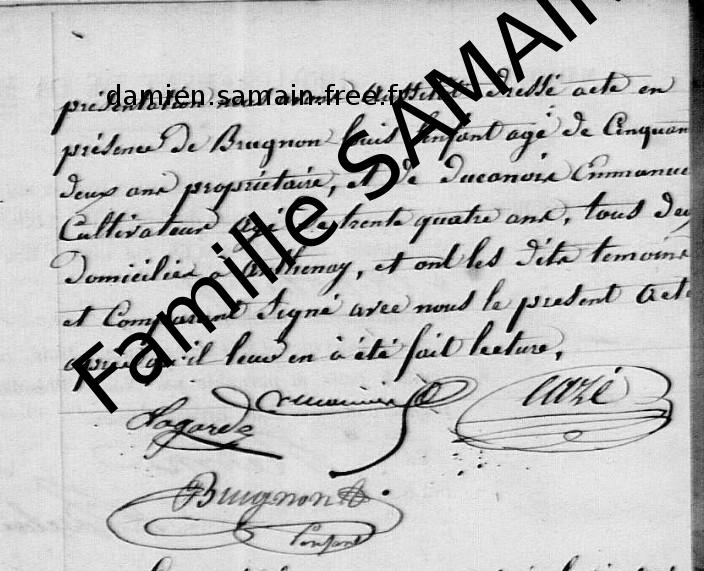 damien.samain.free.fr
Famille SAMAIN
présentation dressé acte en
présence de Brugnon Louis l'enfant agé de Cinquan
deux ans propriétaire, et de ducanoix Emmanue
Cultivateur agé de trente quatre ans, tous deux
domiciliés à Arthenay, et ont les dits temoins
et Comparant Signé avec nous le present acte
après qu'il leur en à été fait lecture,
Lagarde
cazé
Brugnon
l'enfant